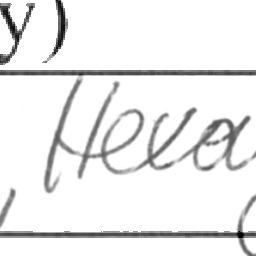 y)
, Hexa